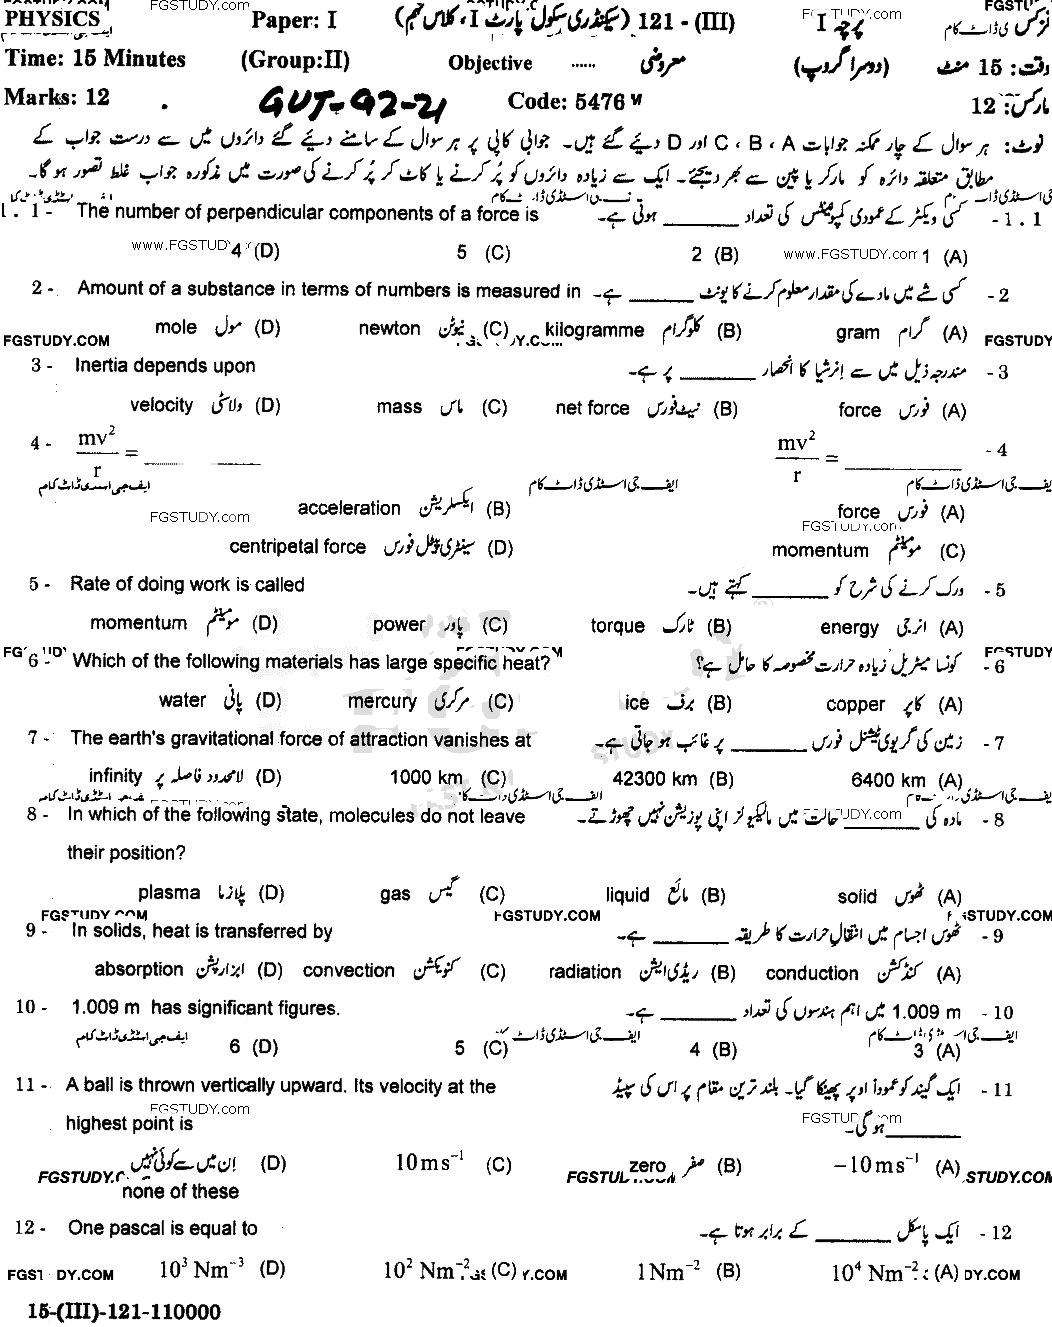 PHYSICS Paper: I سیکنڈری سکول پارٹ I، کلاس نہم) 121 - (III) پرچہ I
Time: 15 Minutes (Group:II) Objective ...... معروضی (دوسرا گروپ) وقت: 15 منٹ
Marks: 12 GUJ-G2-21 Code: 5476 مارکس: 12
نوٹ: ہر سوال کے چار ممکنہ جوابات A ، B ، C اور D دیئے گئے ہیں۔ جوابی کاپی پر ہر سوال کے سامنے دیئے گئے دائروں میں سے درست جواب کے
مطابق متعلقہ دائرہ کو مارکر یا پین سے بھر دیجئے۔ ایک سے زیادہ دائروں کو پُر کرنے یا کاٹ کر پُر کرنے کی صورت میں مذکورہ جواب غلط تصور ہو گا۔
1 . 1 - The number of perpendicular components of a force is کسی ویکٹر کے عمودی کمپوننٹس کی تعداد ______ ہوتی ہے۔ 1 . 1 -
www.FGSTUDY 4 (D) 5 (C) 2 (B) www.FGSTUDY.com 1 (A)
2 - Amount of a substance in terms of numbers is measured in کسی شے میں مادے کی مقدار معلوم کرنے کا یونٹ ______ ہے۔ 2 -
mole مول (D) newton نیوٹن (C) kilogramme کلوگرام (B) gram گرام (A)
FGSTUDY.COM FGSTUDY
3 - Inertia depends upon مندرجہ ذیل میں سے انرشیا کا انحصار ______ پر ہے۔ 3 -
velocity ولاسٹی (D) mass ماس (C) net force نیٹ فورس (B) force فورس (A)
4 - mv²/r = ______ mv²/r = ______ 4 -
ایف جی اسٹڈی ڈاٹ کام ایف جی اسٹڈی ڈاٹ کام ایف جی اسٹڈی ڈاٹ کام
FGSTUDY.com acceleration ایکسلریشن (B) force فورس (A)
FGSTUDY.com
centripetal force سینٹری پیٹل فورس (D) momentum مومینٹم (C)
5 - Rate of doing work is called ورک کرنے کی شرح کو ______ کہتے ہیں۔ 5 -
momentum مومینٹم (D) power پاور (C) torque ٹارک (B) energy انرجی (A)
6 - Which of the following materials has large specific heat? کونسا میٹریل زیادہ حرارت مخصوصہ کا حامل ہے؟ 6 -
water پانی (D) mercury مرکری (C) ice برف (B) copper کاپر (A)
7 - The earth's gravitational force of attraction vanishes at زمین کی گریوی ٹیشنل فورس ______ پر غائب ہو جاتی ہے۔ 7 -
infinity لامحدود فاصلہ پر (D) 1000 km (C) 42300 km (B) 6400 km (A)
8 - In which of the following state, molecules do not leave مادہ کی ______ حالت میں مالیکیولز اپنی پوزیشن نہیں چھوڑتے۔ 8 -
their position?
plasma پلازما (D) gas گیس (C) liquid مائع (B) solid ٹھوس (A)
FGSTUDY.COM FGSTUDY.COM FGSTUDY.COM
9 - In solids, heat is transferred by ٹھوس اجسام میں انتقالِ حرارت کا طریقہ ______ ہے۔ 9 -
absorption ابزارپشن (D) convection کنویکشن (C) radiation ریڈی ایشن (B) conduction کنڈکشن (A)
10 - 1.009 m has significant figures. 1.009 m میں اہم ہندسوں کی تعداد ______ ہے۔ 10 -
ایف جی اسٹڈی ڈاٹ کام 6 (D) 5 (C) 4 (B) 3 (A)
11 - A ball is thrown vertically upward. Its velocity at the ایک گیند کو عموداً اوپر پھینکا گیا۔ بلند ترین مقام پر اس کی سپیڈ 11 -
FGSTUDY.com
highest point is ______ ہو گی۔
ان میں سے کوئی نہیں (D) 10ms⁻¹ (C) zero صفر (B) −10ms⁻¹ (A)
none of these
12 - One pascal is equal to ایک پاسکل ______ کے برابر ہوتا ہے۔ 12 -
10³ Nm⁻³ (D) 10² Nm⁻² (C) 1Nm⁻² (B) 10⁴ Nm⁻² (A)
15-(III)-121-110000